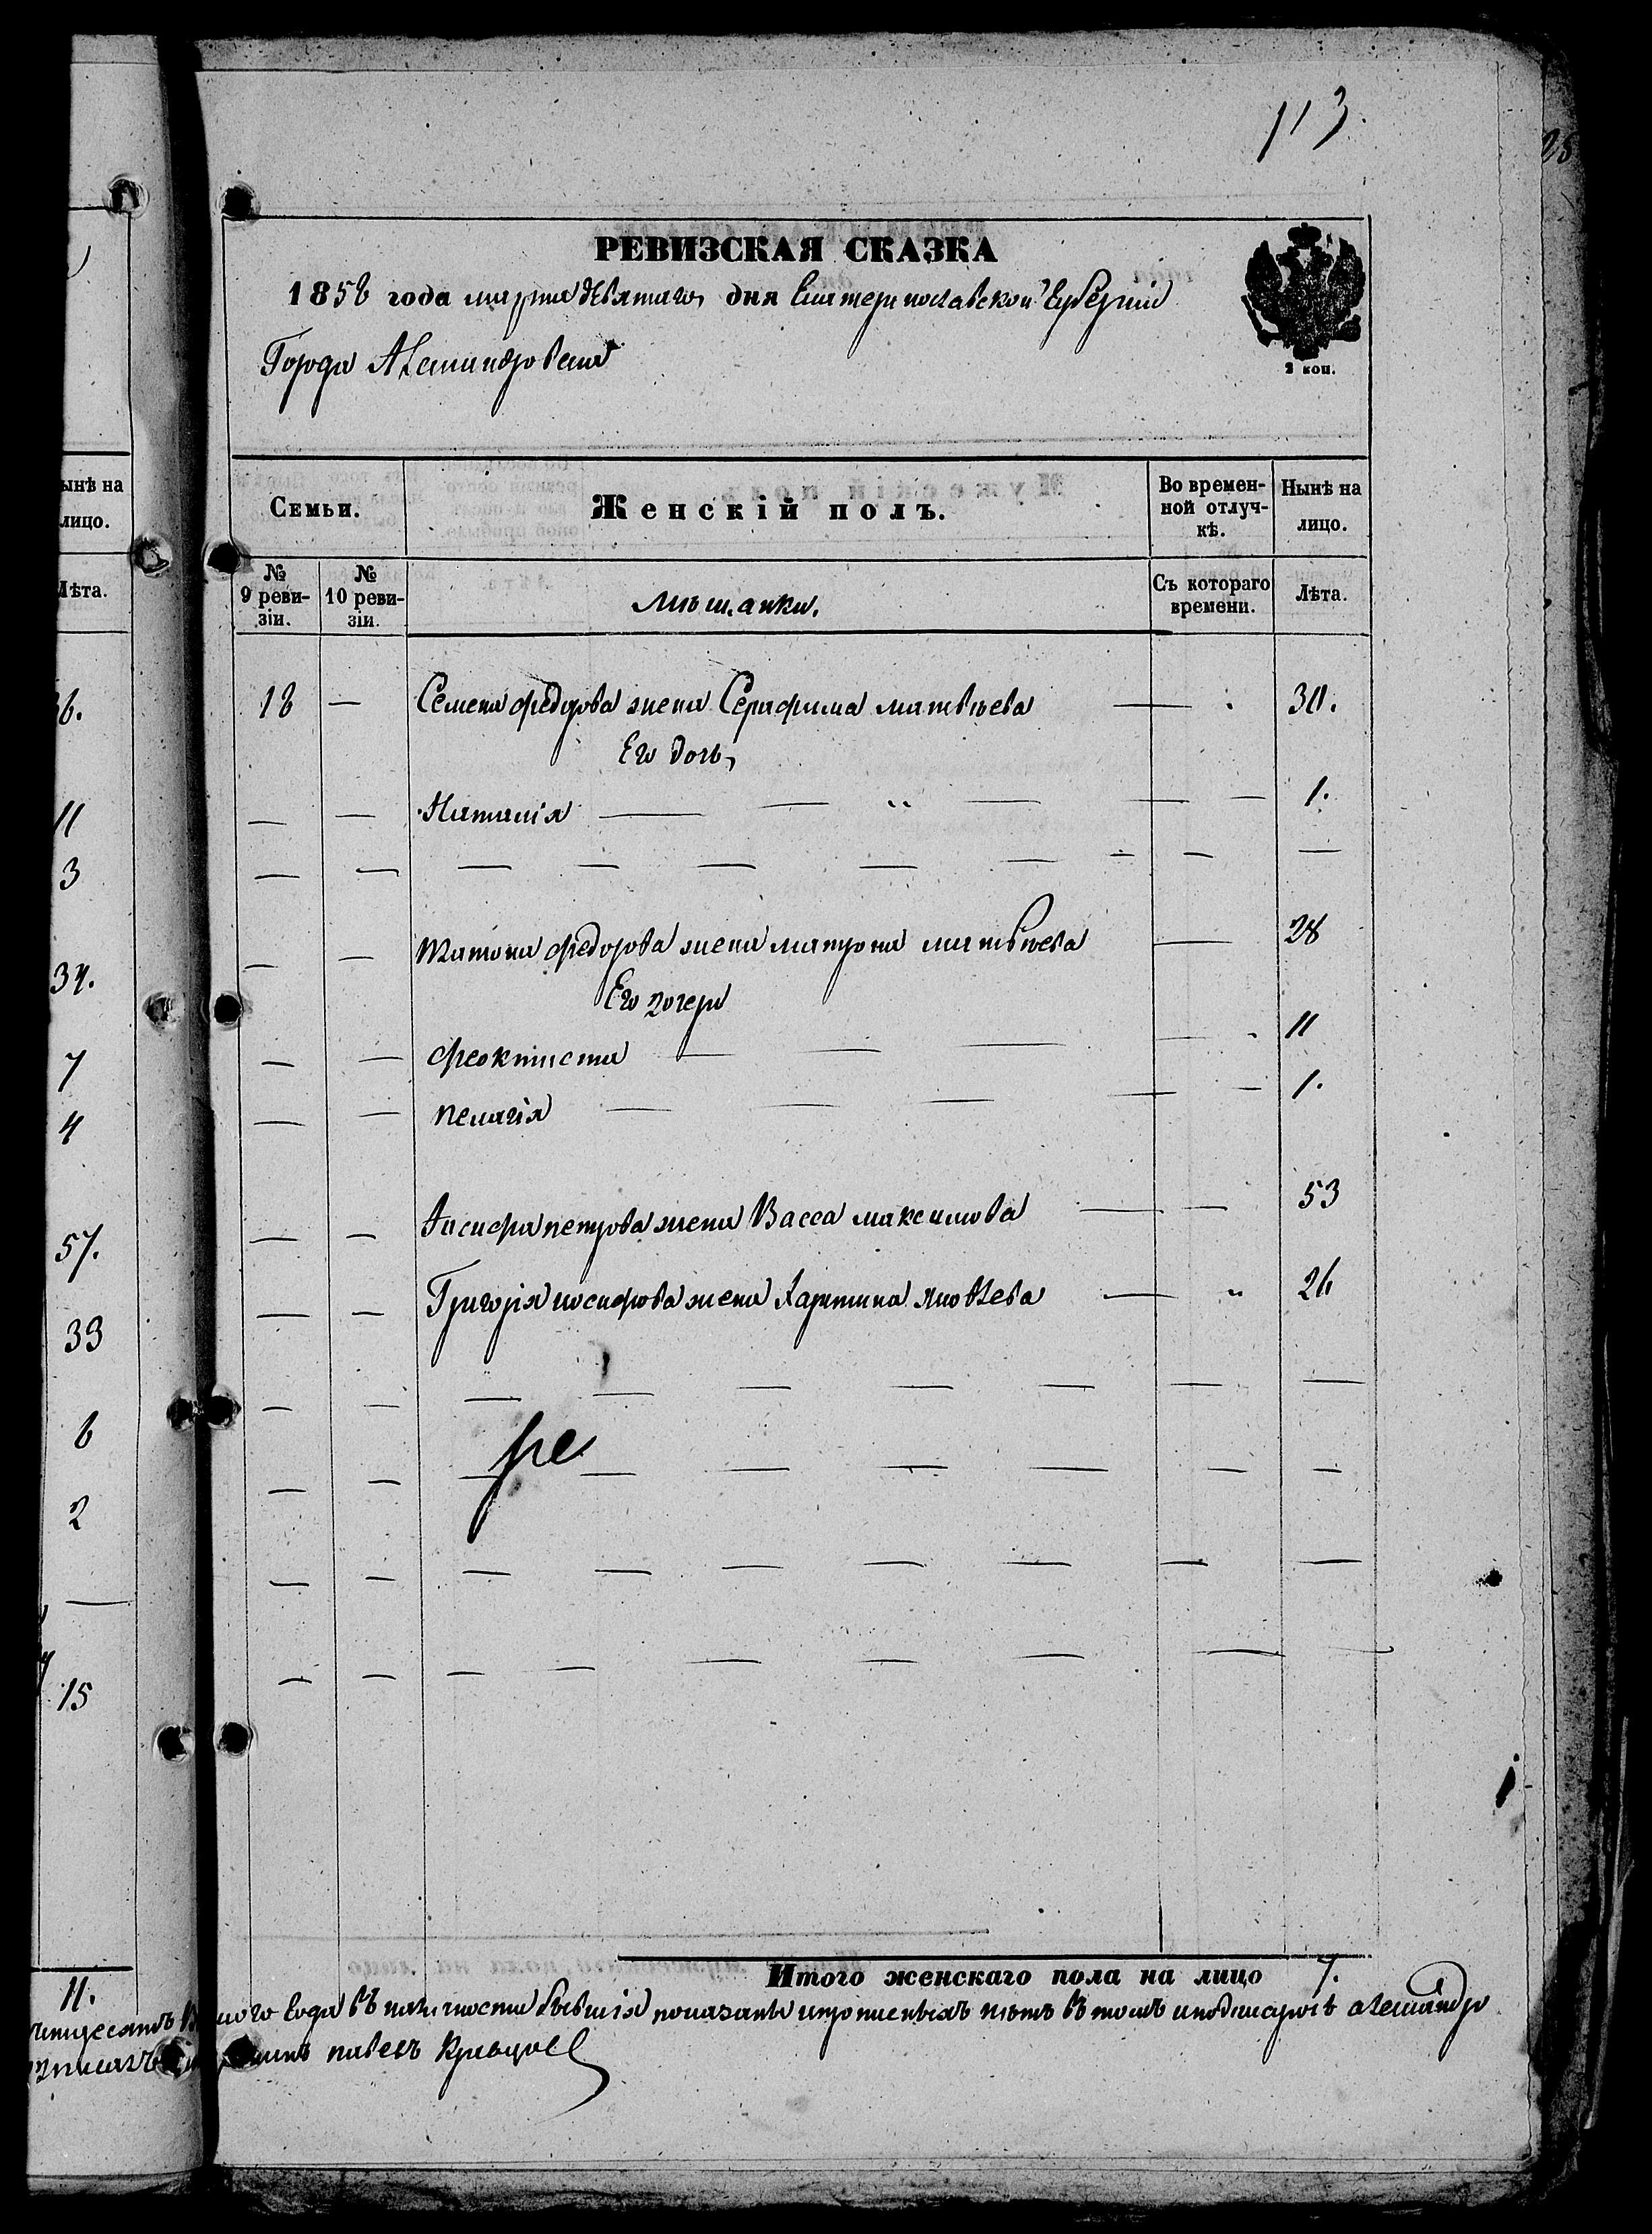 113.
28
РЕВИЗСКАЯ СКАЗКА
1858 года марта девятаго дня Екатеринославской Губерніи
Города Александровска
2 коп.
Семьи.
Женскій полъ.
Во времен-
ной отлуч-
кѣ.
Нынѣ на
лицо.
№
9 реви-
зіи.
№
10 реви-
зіи.
мѣщанки.
Съ котораго
времени.
Лѣта.
18 — Семена федорова жена Серафима матвѣева — 30.
Его дочь,
— — Наталія — — „ — — — 1.
— — Платона федорова жена матрона матвѣева — 28
Его дочери
— — феоктиста — — — — 11
— — пелагія — — — — — 1.
— — Іосифа петрова жена Васса максимова — — 53
— — Григорія иосифова жена Харитина Яковлева — „ 26
Итого женскаго пола на лицо 7.
ного года въ наличности бывшія показаны и прописныхъ нѣтъ въ томъ и подписуюсъ александро
павелъ Кривцов
ынѣ на
лицо.
Лѣта.
36.
11
3
34.
7
4
57.
33
6
2
15
11.